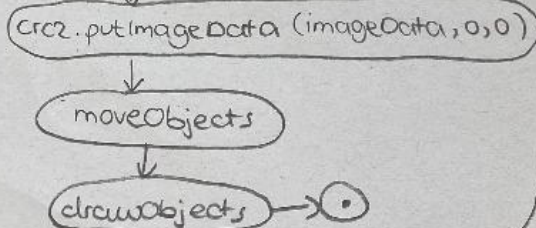 crc2.putImageData (imageData,0,0)
moveObjects
drawObjects